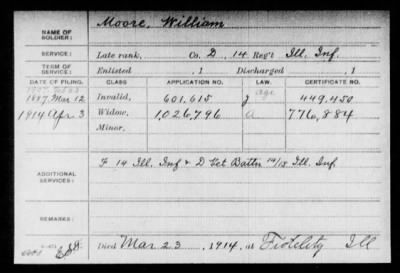 NAME OF SOLDIER: Moore, William
SERVICE: Late rank, Co. D, 14 Reg't Ill. Inf.
TERM OF SERVICE: Enlisted , 1 Discharged , 1
DATE OF FILING. CLASS. APPLICATION NO. LAW. CERTIFICATE NO.
age
1887 Mar 12 Invalid, 601.615 J 449.450
1914 Apr 3 Widow, 1,026,796 a 776,884
Minor,
ADDITIONAL SERVICES: F 14 Ill. Inf & D Vet Battn 14/15 Ill. Inf.
REMARKS:
Died Mar 23, 1914, at Fidelity Ill